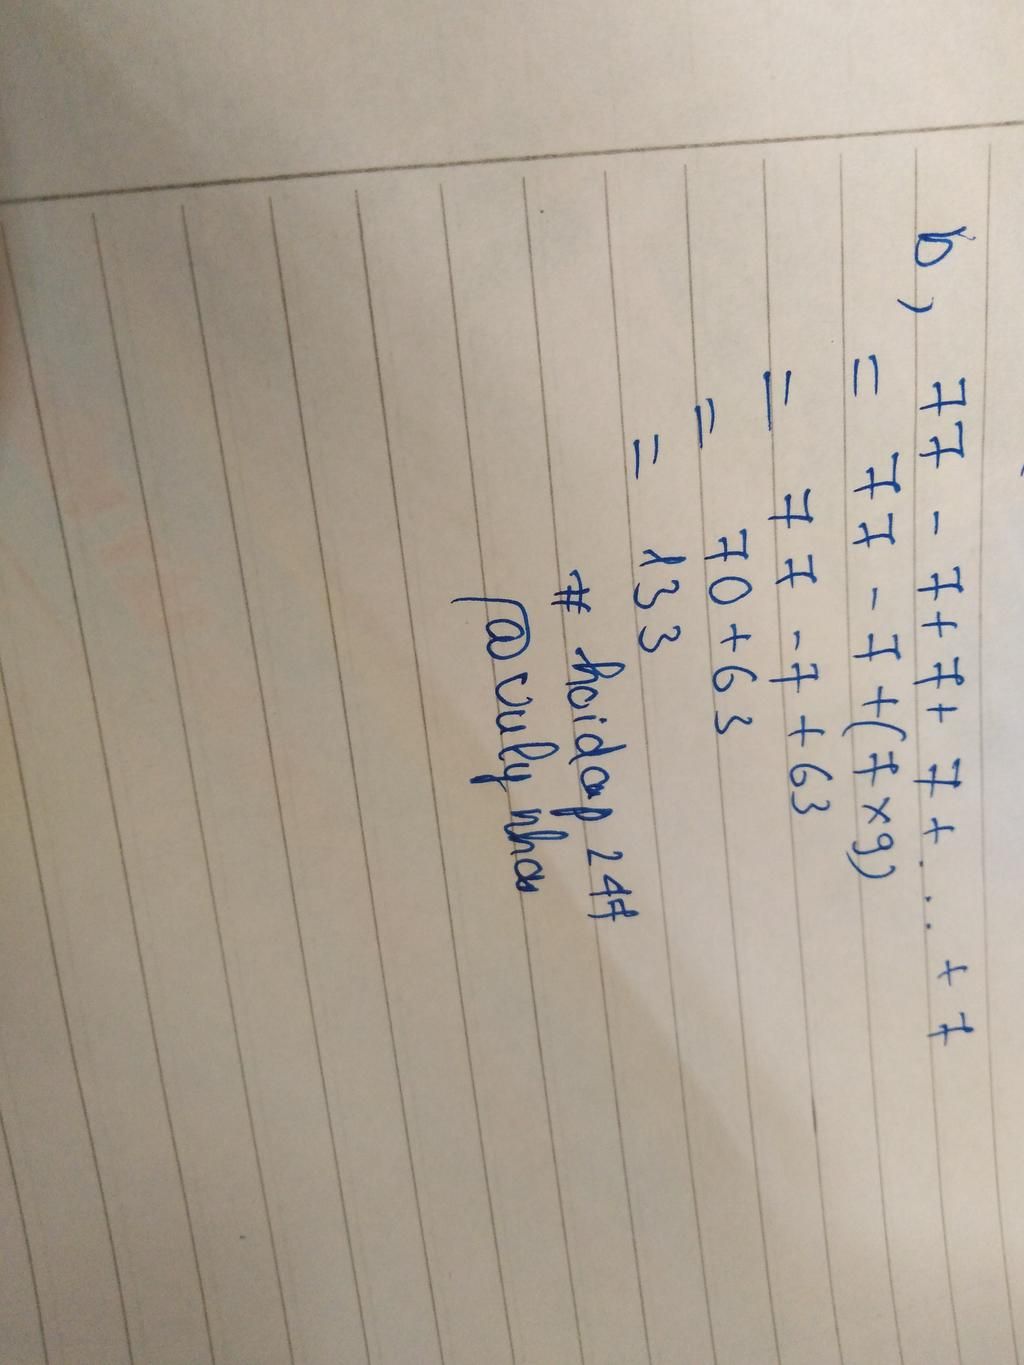 b, 77 - 7 + 7 + 7 + ... + 7
= 77 - 7 + (7 x 9)
= 77 - 7 + 63
= 70 + 63
= 133
# hoidap 247
@vulynha